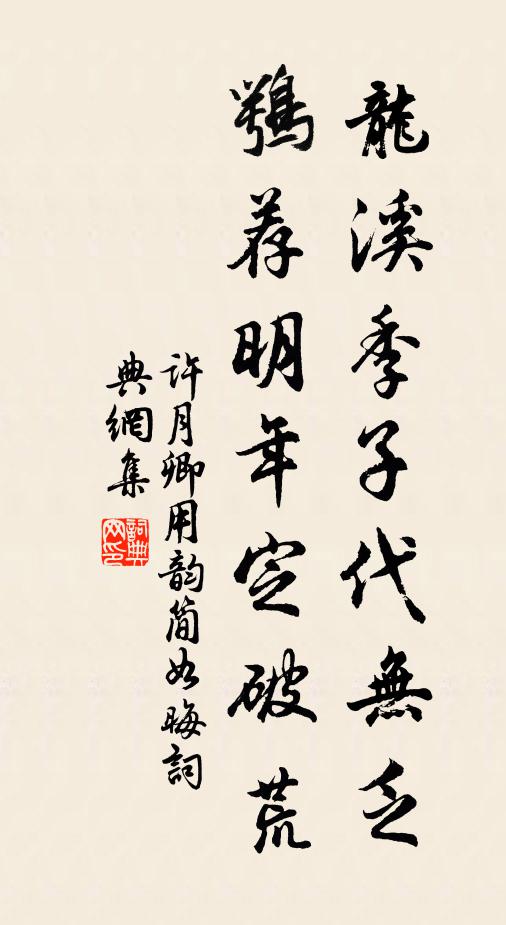 龍溪季子代無乏
鶚荐明年定破荒
許月卿用韵简如晦詞
典網集
詞典网印